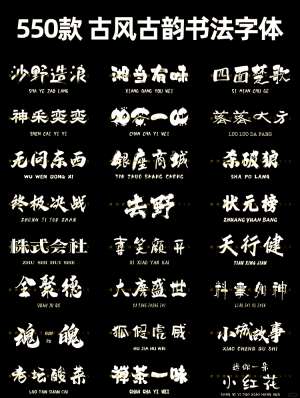 550款 古风古韵书法字体
沙野造浪 湘当有味 四面楚歌
SHA YE ZAO LANG XIANG DANG YOU WEI SI MIAN CHU GE
神采奕奕 禅茶一味 落落大方
SHEN CAI YI YI CHAN CHA YI WEI LUO LUO DA FANG
无问东西 银座商城 杀破狼
WU WEN DONG XI YIN ZUO SHANG CHENG SHA PO LANG
终极决战 去野 状元榜
ZHONG JI JUE ZHAN ZHUANG YUAN BANG
株式会社 喜笑颜开 天行健
ZHU SHI HUI SHE XI XIAO YAN KAI TIAN XING JIAN
全聚德 大唐盛世 抖擞精神
魂 魄 狐假虎威 小城故事
HU JIA HU WEI XIAO CHENG GU SHI
老坛酸菜 禅茶一味 送你一朵
小红花
LAO TAN SUAN CAI CHAN CHA YI WEI